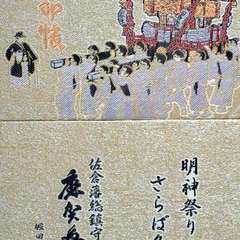 印帳
明神祭り
さらば
佐倉藩総鎮守
麻賀多
堀田